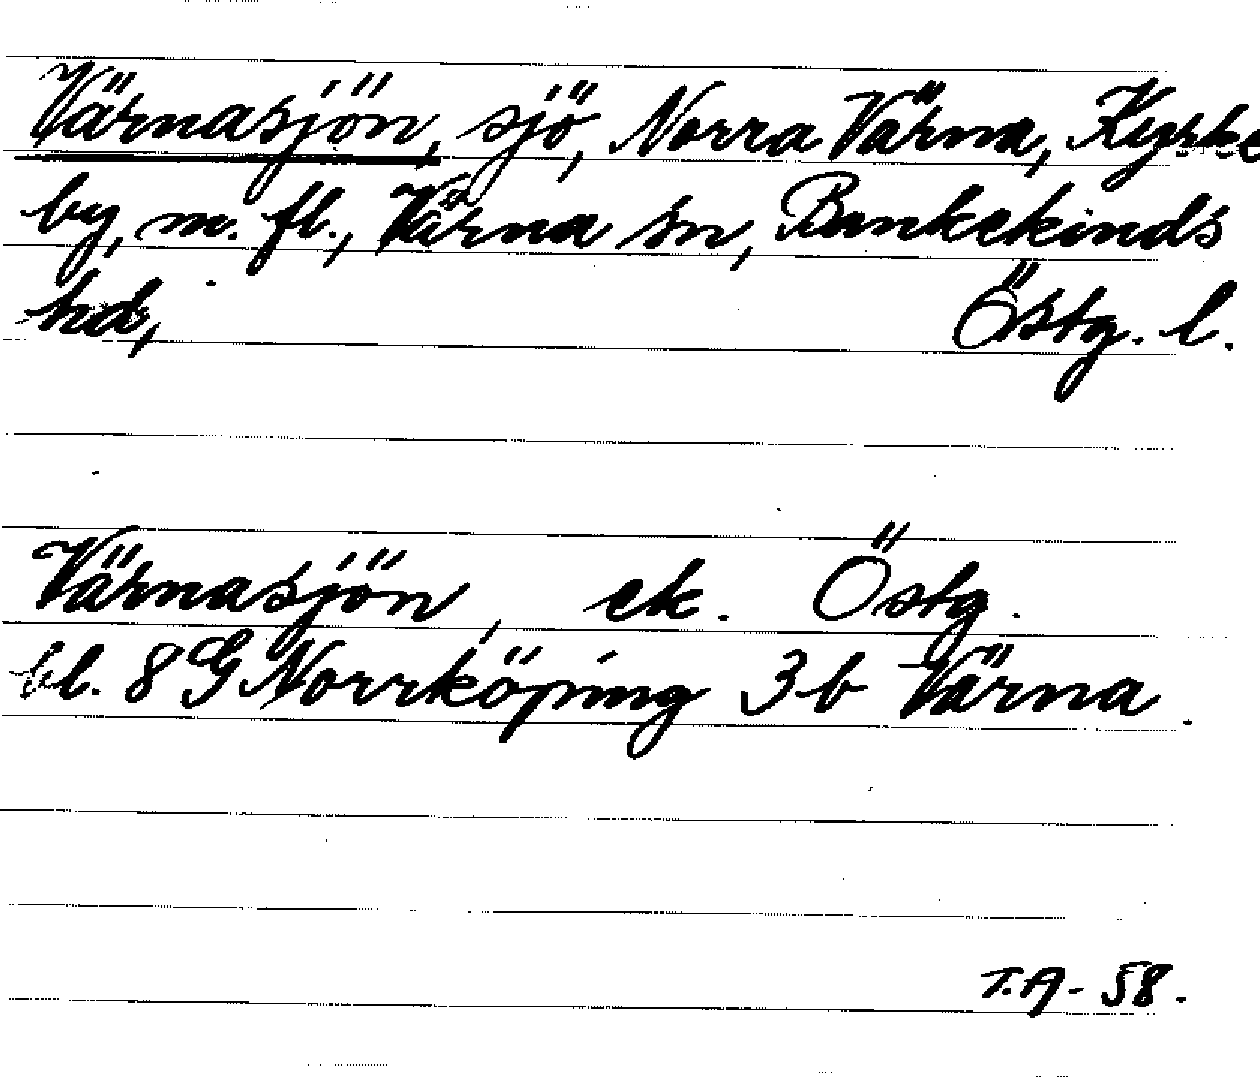 Värnasjön, sjö, Norra Värna, Kyrke
by, m. fl., Värna sn, Bankekinds
hd, Östg. l.
Värnasjön, ek. Östg.
bl. 8 G Norrköping 3 b Värna.
T.A- 58.